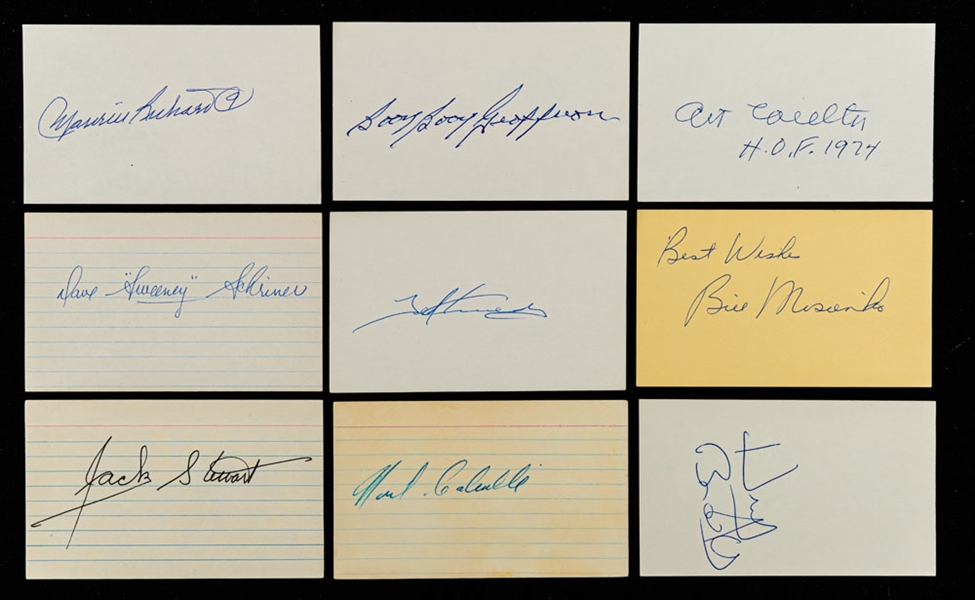 Maurice Richard 9
Boom Boom Geoffrion
Art Coulter
H.O.F. 1974
Dave "Sweeney" Schriner
Ted Kennedy
Best Wishes
Bill Mosienko
Jack Stewart